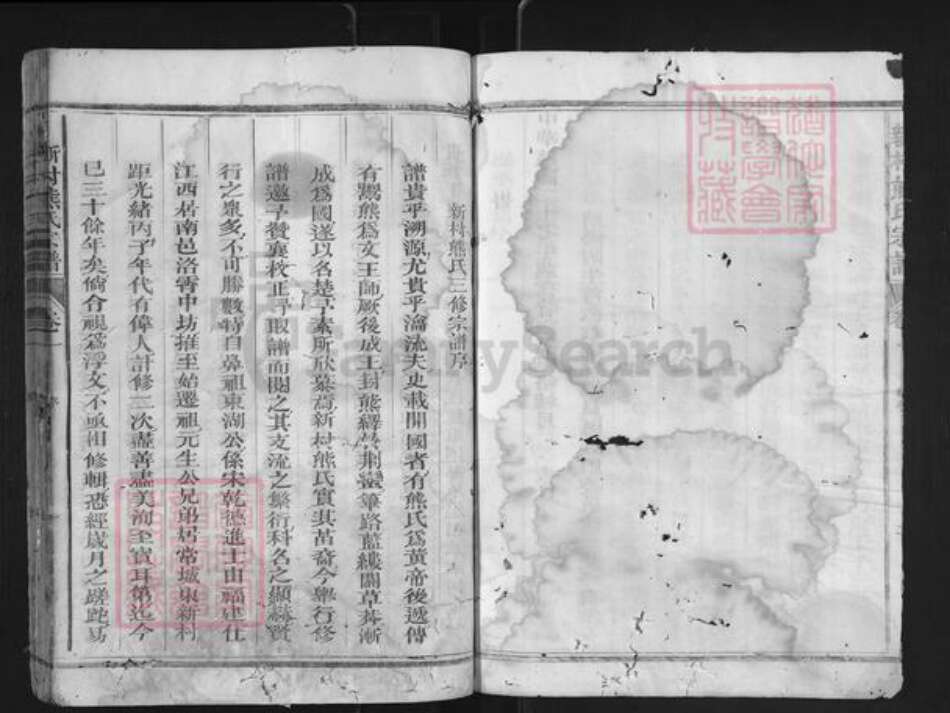 新村熊氏三修宗譜序
譜貴乎溯源尤貴乎瀹流夫史載開國者有熊氏為黃帝後遞傳
有鬻熊為文王師厥後成王封熊繹於荆蠻篳路藍縷闢草莽漸
成為國遂以名楚予素所欣慕焉新村熊氏實其苗裔今舉行修
譜邀予贊襄校正予取譜而閱之其支流之繁衍科名之顯赫實
行之衆多不可勝數特自鼻祖東湖公係宋乾德進士由福建仕
江西居南邑洛霽中坊推至始遷祖元生公兄弟居常城東新村
距光緒丙子年代有偉人計修二次盡善盡美洵至寶耳第迄今
已三十餘年矣倘合視為浮文不亟相修輯恐經歲月之蹉跎易
新村熊氏宗譜
卷一
FamilySearch